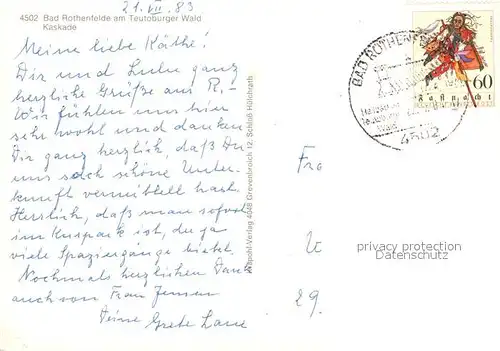 21. VII. 83
4502 Bad Rothenfelde am Teutoburger Wald
Kaskade
Meine liebe Käthe!
Dir und Luhu ganz
herzliche Grüße aus R.,
Wir fühlen uns hier
sehr wohl und danken
Dir ganz herzlich, daß Du
uns solch schöne Unter-
kunft vermittelt hast.
Herrlich, daß man sofort
im Kurpark ist, der ja
viele Spaziergänge bietet.
Nochmals herzlichen Dank
auch von Frau Jensen
Deine Grete
Kapohl-Verlag 4048 Grevenbroich 12, Schloß Hülchrath
BAD ROTHENF
Teutoburger
Wald
4502
60
Fastnacht
Fra
29.
privacy protection
Datenschutz